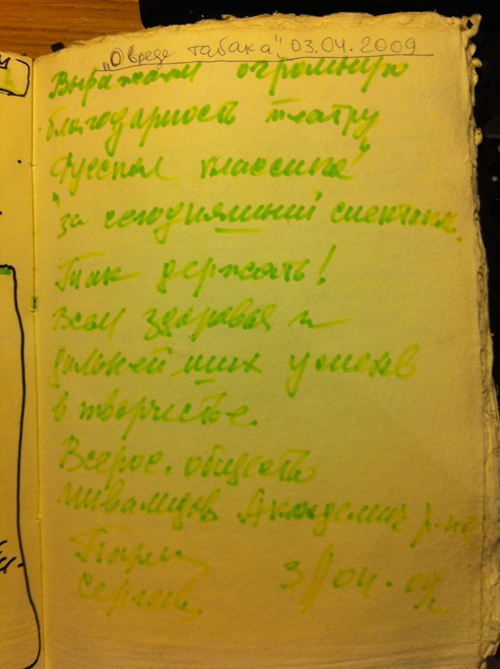 „О вреде табака“, 03.04.2009
Выражаем огромную
благодарность театру
"Русская классика"
за сегодняшний спектакль.
Так держать!
Всем здоровья и
дальнейших успехов
в творчестве.
Всерос. общество
инвалидов Академич. р-на
3/04.09г.